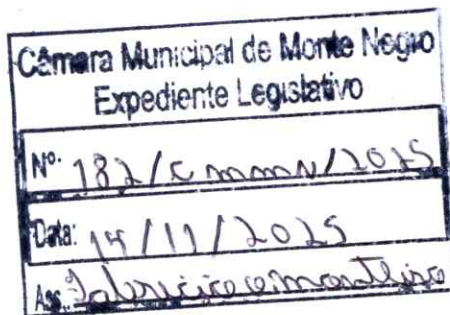 Câmara Municipal de Monte Negro
Expediente Legislativo
Nº. 182/Cmmn/2025
Data: 14/11/2025
Ass.